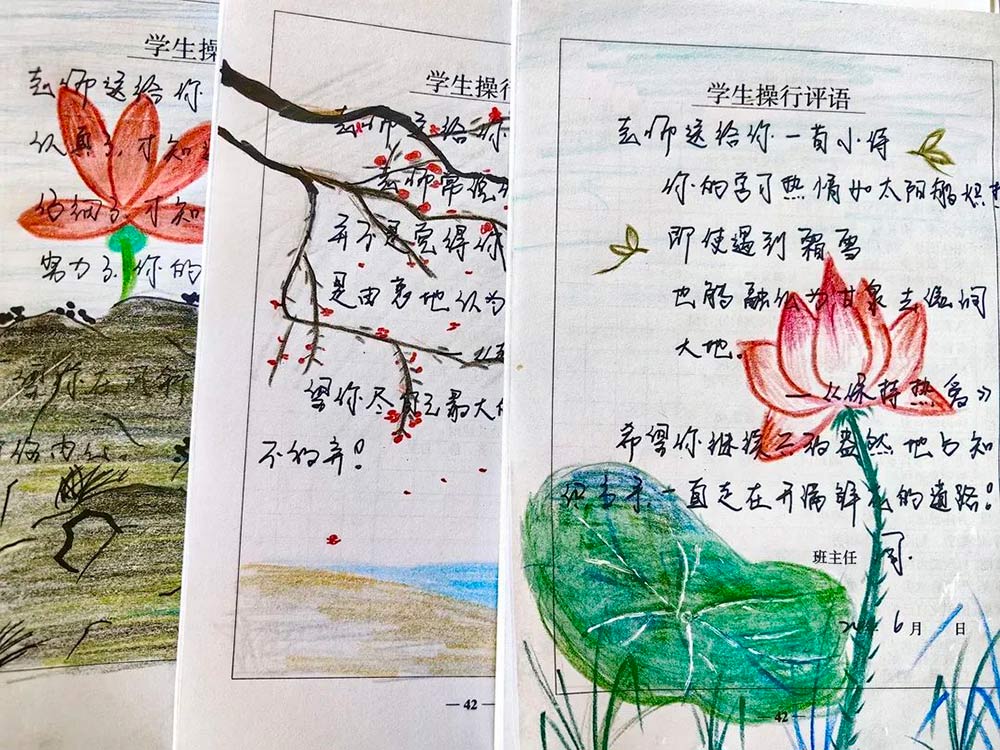 学生操
老师送给你
认真了,才知
仔细了,才知
努力了,你的
望你在
学生操行
老师送给你
老师常
并不是觉得你
是由衷地认为
望你尽 最大
不的弃!
42
学生操行评语
老师送给你一首小诗
你的学习热情如太阳般
即使遇到霜雪
也能融化为甘泉去滋润
大地。
—《保持热爱》
希望你继续 地与知
识 一直走在开满鲜花的道路!
班主任
6月 日
42